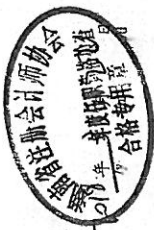 省注册会计师协会
201 年
年度任职资格检查
合格专用章
月 日